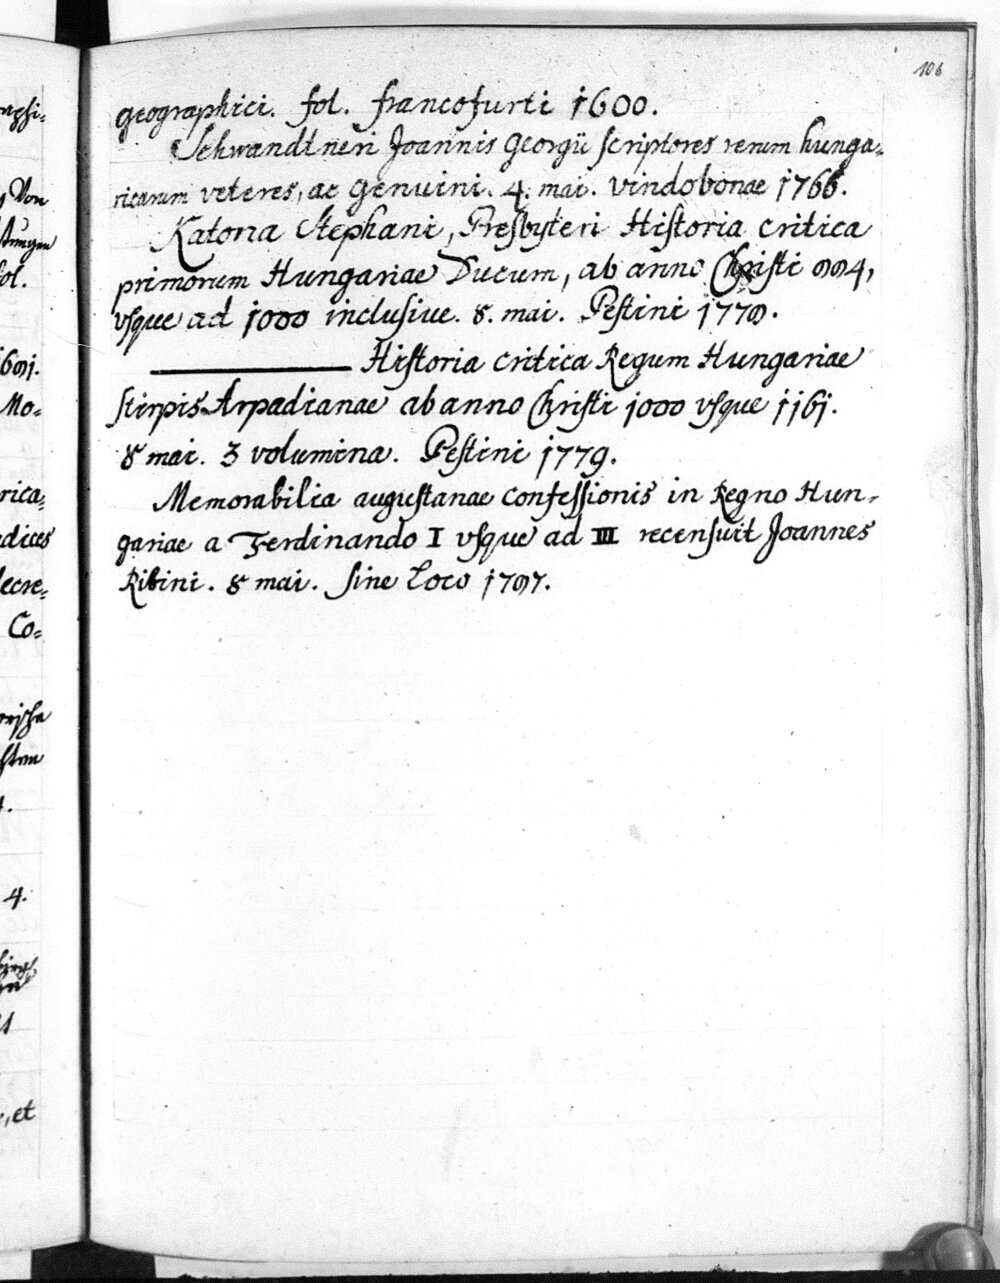 Von
1681.
Mo=
rica=
dices
decre=
Co=
4.
, et
106
geographici. fol. francofurti 1600.
Schwandtneri Joannis Georgii scriptores rerum hunga=
ricarum veteres, ac genuini. 4. mai. vindobonae 1766.
Katona Stephani, Presbyteri Historia critica
primorum Hungariae Ducum, ab anno Christi 884,
usque ad 1000 inclusive. 8. mai. Pestini 1778.
———— Historia critica Regum Hungariae
stirpis Arpadianae ab anno Christi 1000 usque 1161.
8 mai. 3 volumina. Pestini 1779.
Memorabilia augustanae confessionis in Regno Hun-
gariae a Ferdinando I usque ad III recensuit Joannes
Ribini. 8 mai. sine Loco 1787.